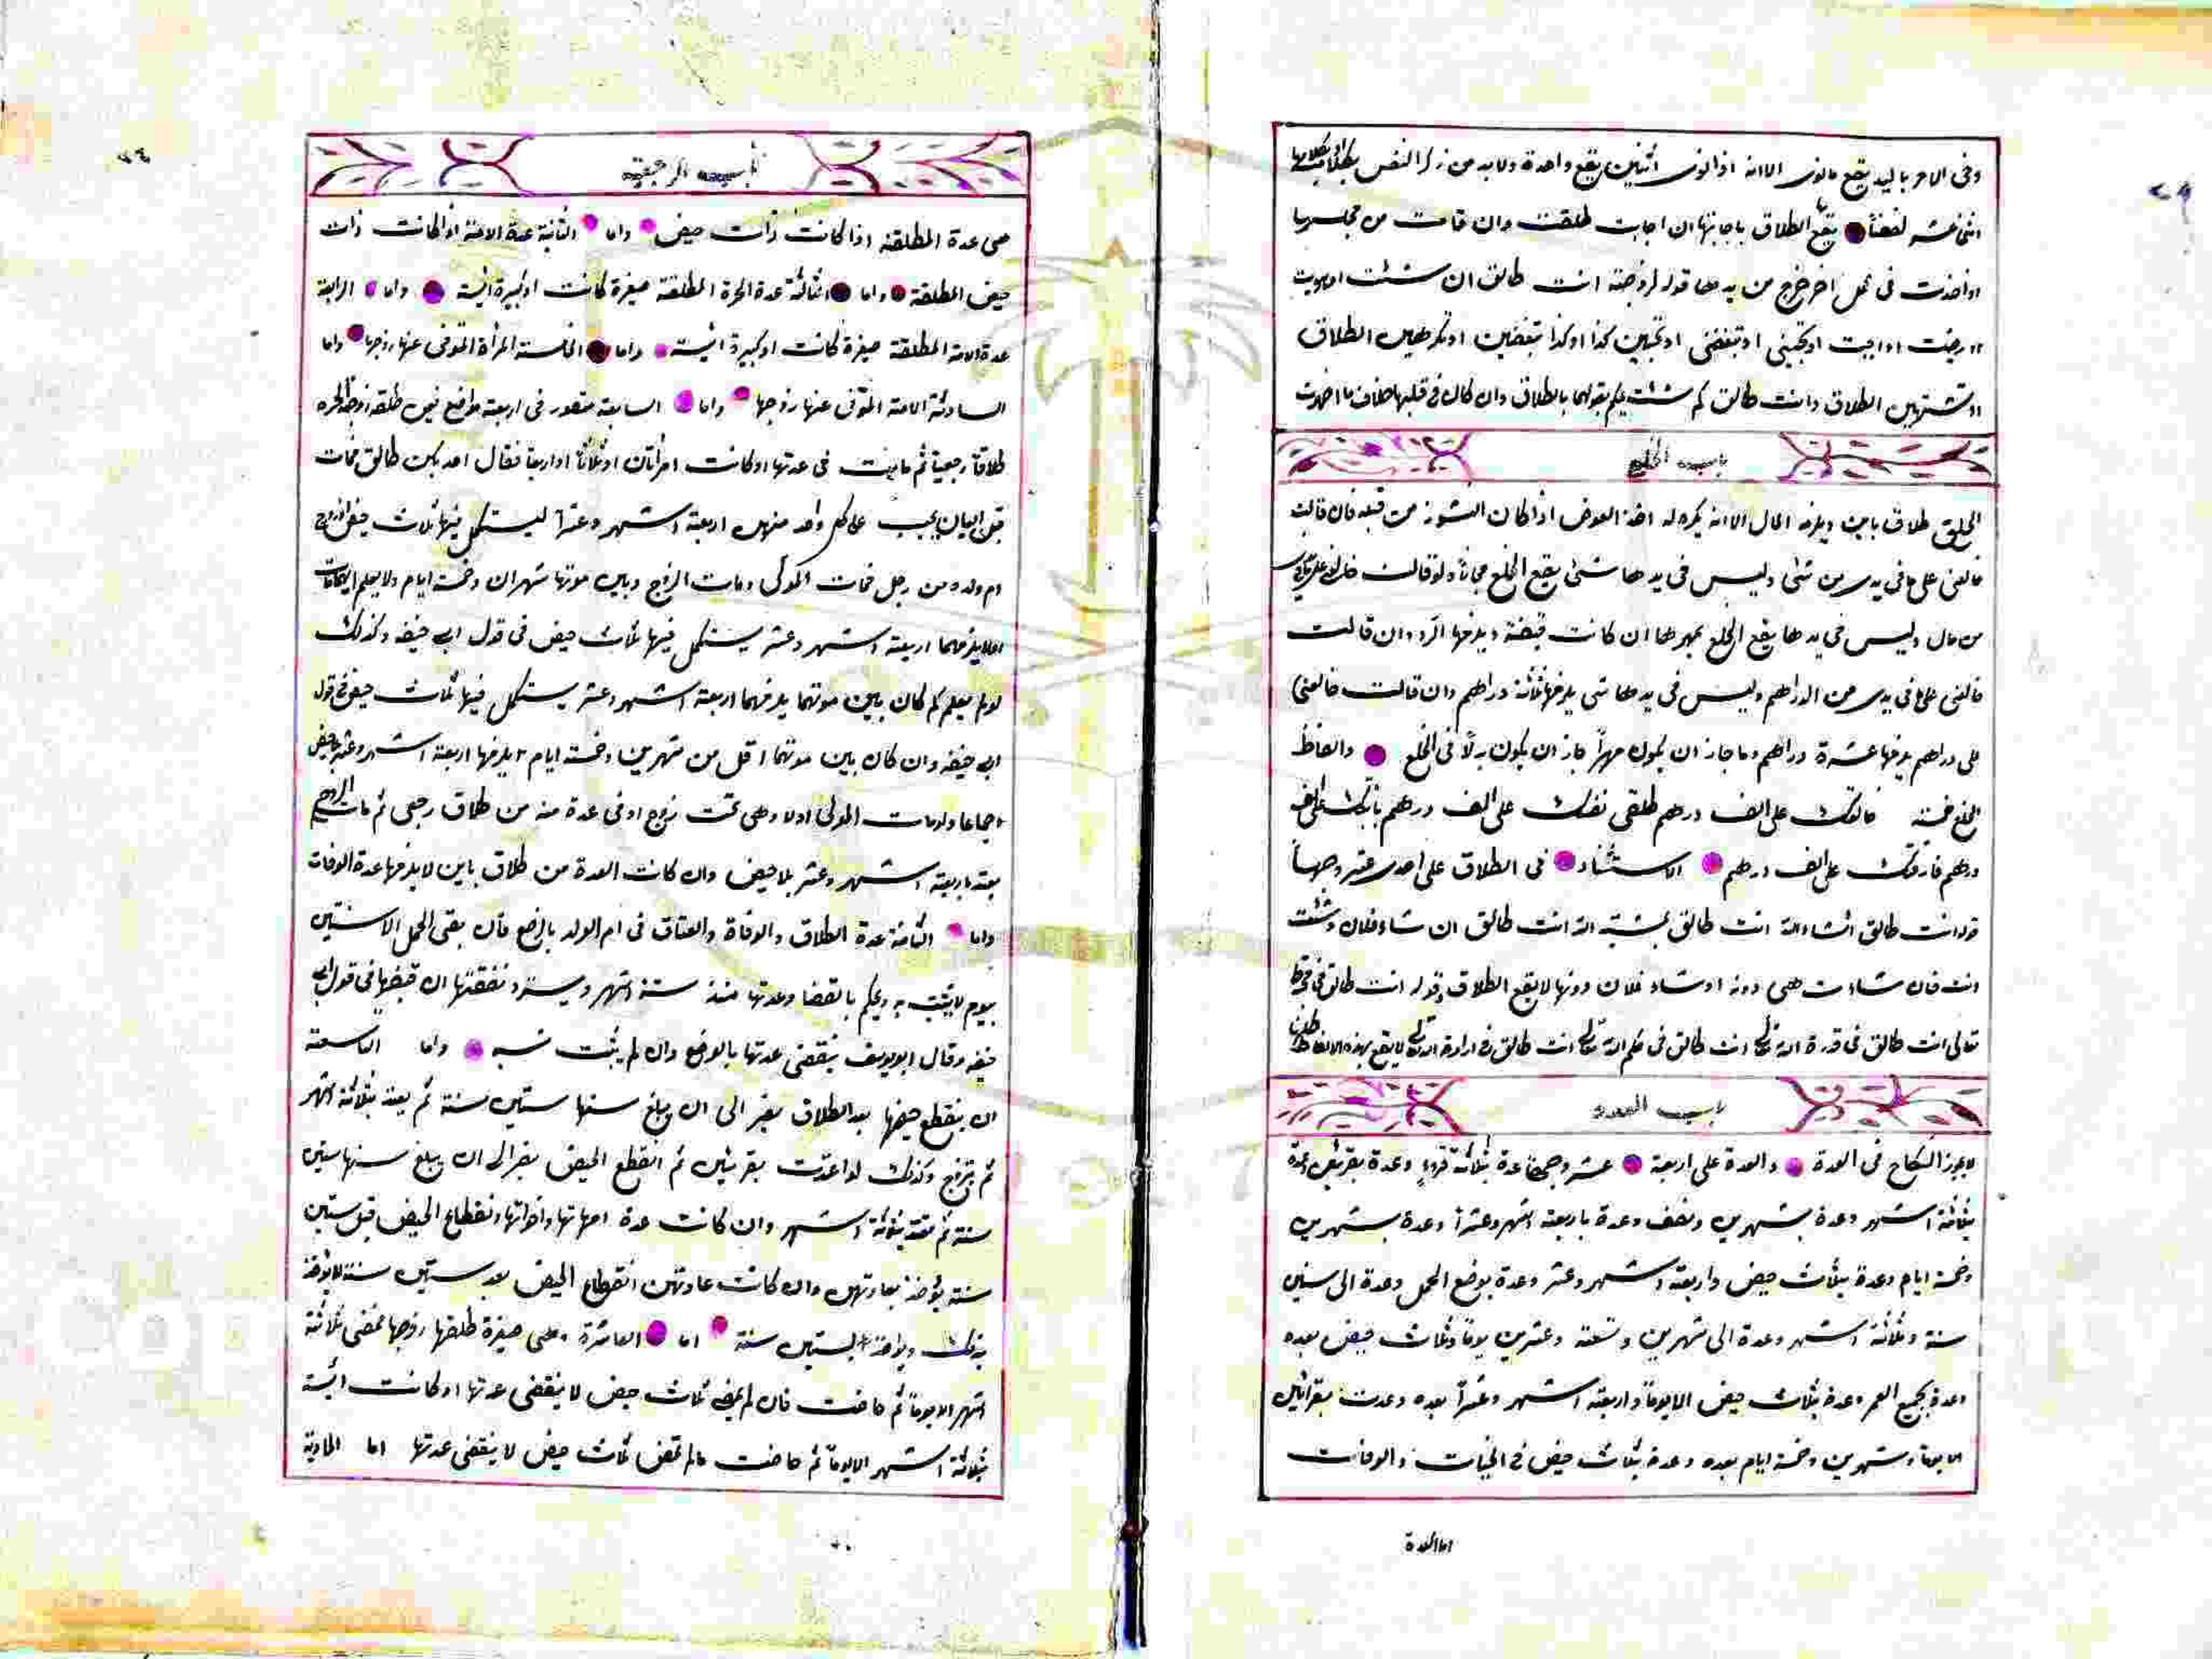 وفى الامر باليد يقع مانوى الا انه اذا نوى اثنين يقع واحدة ولا بد من ذكر النفس
اثنى عشر لفظاً يقع بها الطلاق باجابتها ان اجابت طلقت وان قامت من مجلسها
او اخذت فى عمل اخر خرج من يدها قوله لزوجته انت طالق ان شئت او هويت
او رضيت او احببت او تحبينى او تبغضنى او تحبين كذا او كذا تبغضين او تكرهين الطلاق
او تشتهين الطلاق وانت طالق كم شئت يحكم بقولها بالطلاق وان كان فى قلبها خلاف ما اظهرت
باب الخلع
الخلع طلاق باين ويلزمه المال الا انه يكره له اخذ العوض اذا كان النشوز من قبله فان قالت
خالعنى على ما فى يدى من شئ وليس فى يدها شئ يقع الخلع مجاناً ولو قالت
من مال وليس فى يدها يقع الخلع بمهرها ان كانت قبضته ويلزمها الرد وان قالت
خالعنى على ما فى يدى من الدراهم وليس فى يدها شى يلزمها ثلاثة دراهم وان قالت خالعنى
على دراهم يلزمها عشرة دراهم وما جاز ان يكون مهراً جاز ان يكون بدلاً فى الخلع والفاظ
الخلع خمسة خالعتك على الف درهم طلقى نفسك على الف درهم باينتك على الف
درهم فارقتك على الف درهم الاستثناء فى الطلاق على احدى عشر وجهاً
قوله انت طالق انشاء الله انت طالق بمشية الله انت طالق ان شاء فلان وشئت
انت فان شاءت هى دونه او شاء فلان دونها لا يقع الطلاق وقوله انت طالق فى
تعالى انت طالق فى قدرة الله تعالى انت طالق فى علم الله تعالى انت طالق فى ارادة الله تعالى لا يقع بهذه الالفاظ
باب العدد
لا يجوز النكاح فى العدة والعدة على اربعة عشر وجها عدة بثلاثة قروء وعدة بقرئين وعدة
بثلاثة اشهر وعدة بشهرين ونصف وعدة باربعة اشهر وعشراً وعدة بشهرين
وخمسة ايام وعدة بثلاث حيض واربعة اشهر وعشر وعدة بوضع الحمل وعدة الى ستين
سنة وثلاثة اشهر وعدة الى شهرين وتسعة وعشرين يوماً وثلاث حيض بعده
وعدة بجميع العمر وعدة بثلاث حيض الا يوماً واربعة اشهر وعشراً بعده وعدت بقرائين
الا يوما وشهرين وخمسة ايام بعده وعدة بثلاث حيض فى الحيات والوفات
اما العدة
باب الرجعية
هى عدة المطلقة اذا كانت ذات حيض واما الثانية عدة الامة اذا كانت ذات
حيض المطلقة واما الثالثة عدة الحرة المطلقة صغيرة كانت او كبيرة ايسة واما الرابعة
عدة الامة المطلقة صغيرة كانت او كبيرة ايسة واما الخامسة المرأة المتوفى عنها زوجها واما
السادسة الامة المتوفى عنها زوجها واما السابعة متصور فى اربعة مواضع فيمن طلق زوجته الحرة
طلاقاً رجعياً ثم مات فى عدتها او كانت امرأتان او ثلاثاً او اربعاً فقال احديكن طالق فمات
قبل البيان يجب على كل واحد منهن اربعة اشهر وعشراً ليستكمل فيها ثلاث حيض او زوج
ام ولده من رجل فمات المولى ومات الزوج وبين موتها شهران وخمسة ايام ولا يعلم ايهما مات
اولا يلزمها اربعة اشهر وعشر يستكمل فيها ثلاث حيض فى قول ابى حنيفه وكذلك
لو لم يعلم كم كان بين موتهما يلزمهما اربعة اشهر وعشر يستكمل فيها ثلاث حيض فى قول
ابى حنيفه وان كان بين موتهما اقل من شهرين وخمسة ايام يلزمها اربعة اشهر وعشر بلا حيض
اجماعا ولو مات المولى اولا وهى تحت زوج او فى عدة منه من طلاق رجعى ثم مات الزوج
يعتد باربعة اشهر وعشر بلا حيض وان كانت العدة من طلاق باين لا يلزمها عدة الوفات
واما الثامنة عدة الطلاق والوفاة والعتاق فى ام الولد بالوضع فان بقى الحمل الا سنتين
بيوم لا يثبت به ويحكم بالقضا وعدتها منذ ستة اشهر ويسترد نفقتها ان قبضها فى قول ابى
حنيفه وقال ابو يوسف ينقضى عدتها بالوضع وان لم يثبت نسبه واما التاسعة
ان ينقطع حيضها بعد الطلاق يصبر الى ان يبلغ سنها ستين سنة ثم يعتد بثلاثة اشهر
ثم يتزوج وكذلك لو اعتدت بقرئين ثم انقطع الحيض يصبر الى ان يبلغ سنها ستين
سنة ثم تعتد بثلاثة اشهر وان كانت عدة امهاتها واخواتها ونقطاع الحيض قبل ستين
سنة يؤخذ بعادتهن وان كانت عادتهن انقطاع الحيض بعد ستين سنة لا يؤخذ
بذلك ويؤخذ الستين سنة اما العاشرة وهى صغيرة طلقها زوجها فمضى ثلاثة
اشهر الا يوماً ثم حاضت فان لم يمض ثلاث حيض لا ينقضى عدتها او كانت ايسة
بثلاثة اشهر الا يوماً ثم حاضت مالم تمض ثلاث حيض لا ينقضى عدتها اما الحادية